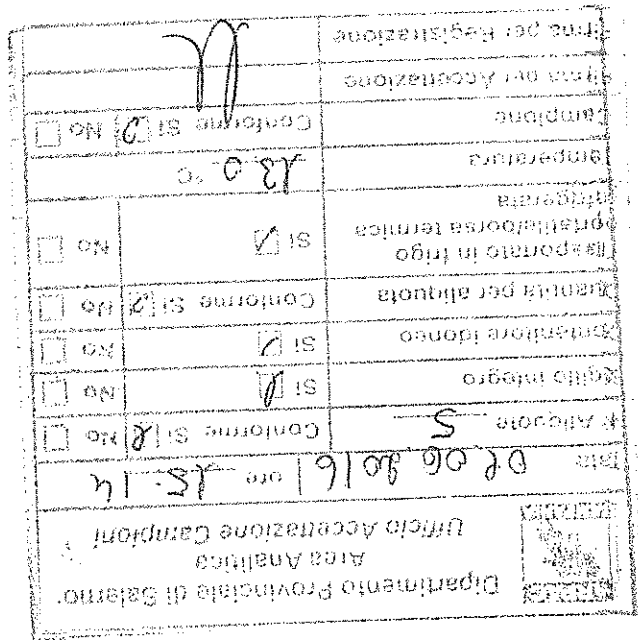 Dipartimento Provinciale di Salerno
Area Analitica
Ufficio Accettazione Campioni
Data 01 06 2016 ore 15.14
N° Aliquote 5 Conforme Si No
Sigillo integro Si No
Contenitore idoneo Si No
Quantità per aliquota Conforme Si No
Trasportato in frigo
portatile/borsa termica
refrigerata Si No
Temperatura 13.0 °C
Campione Conforme Si No
Firma per Accettazione
Firma per Registrazione